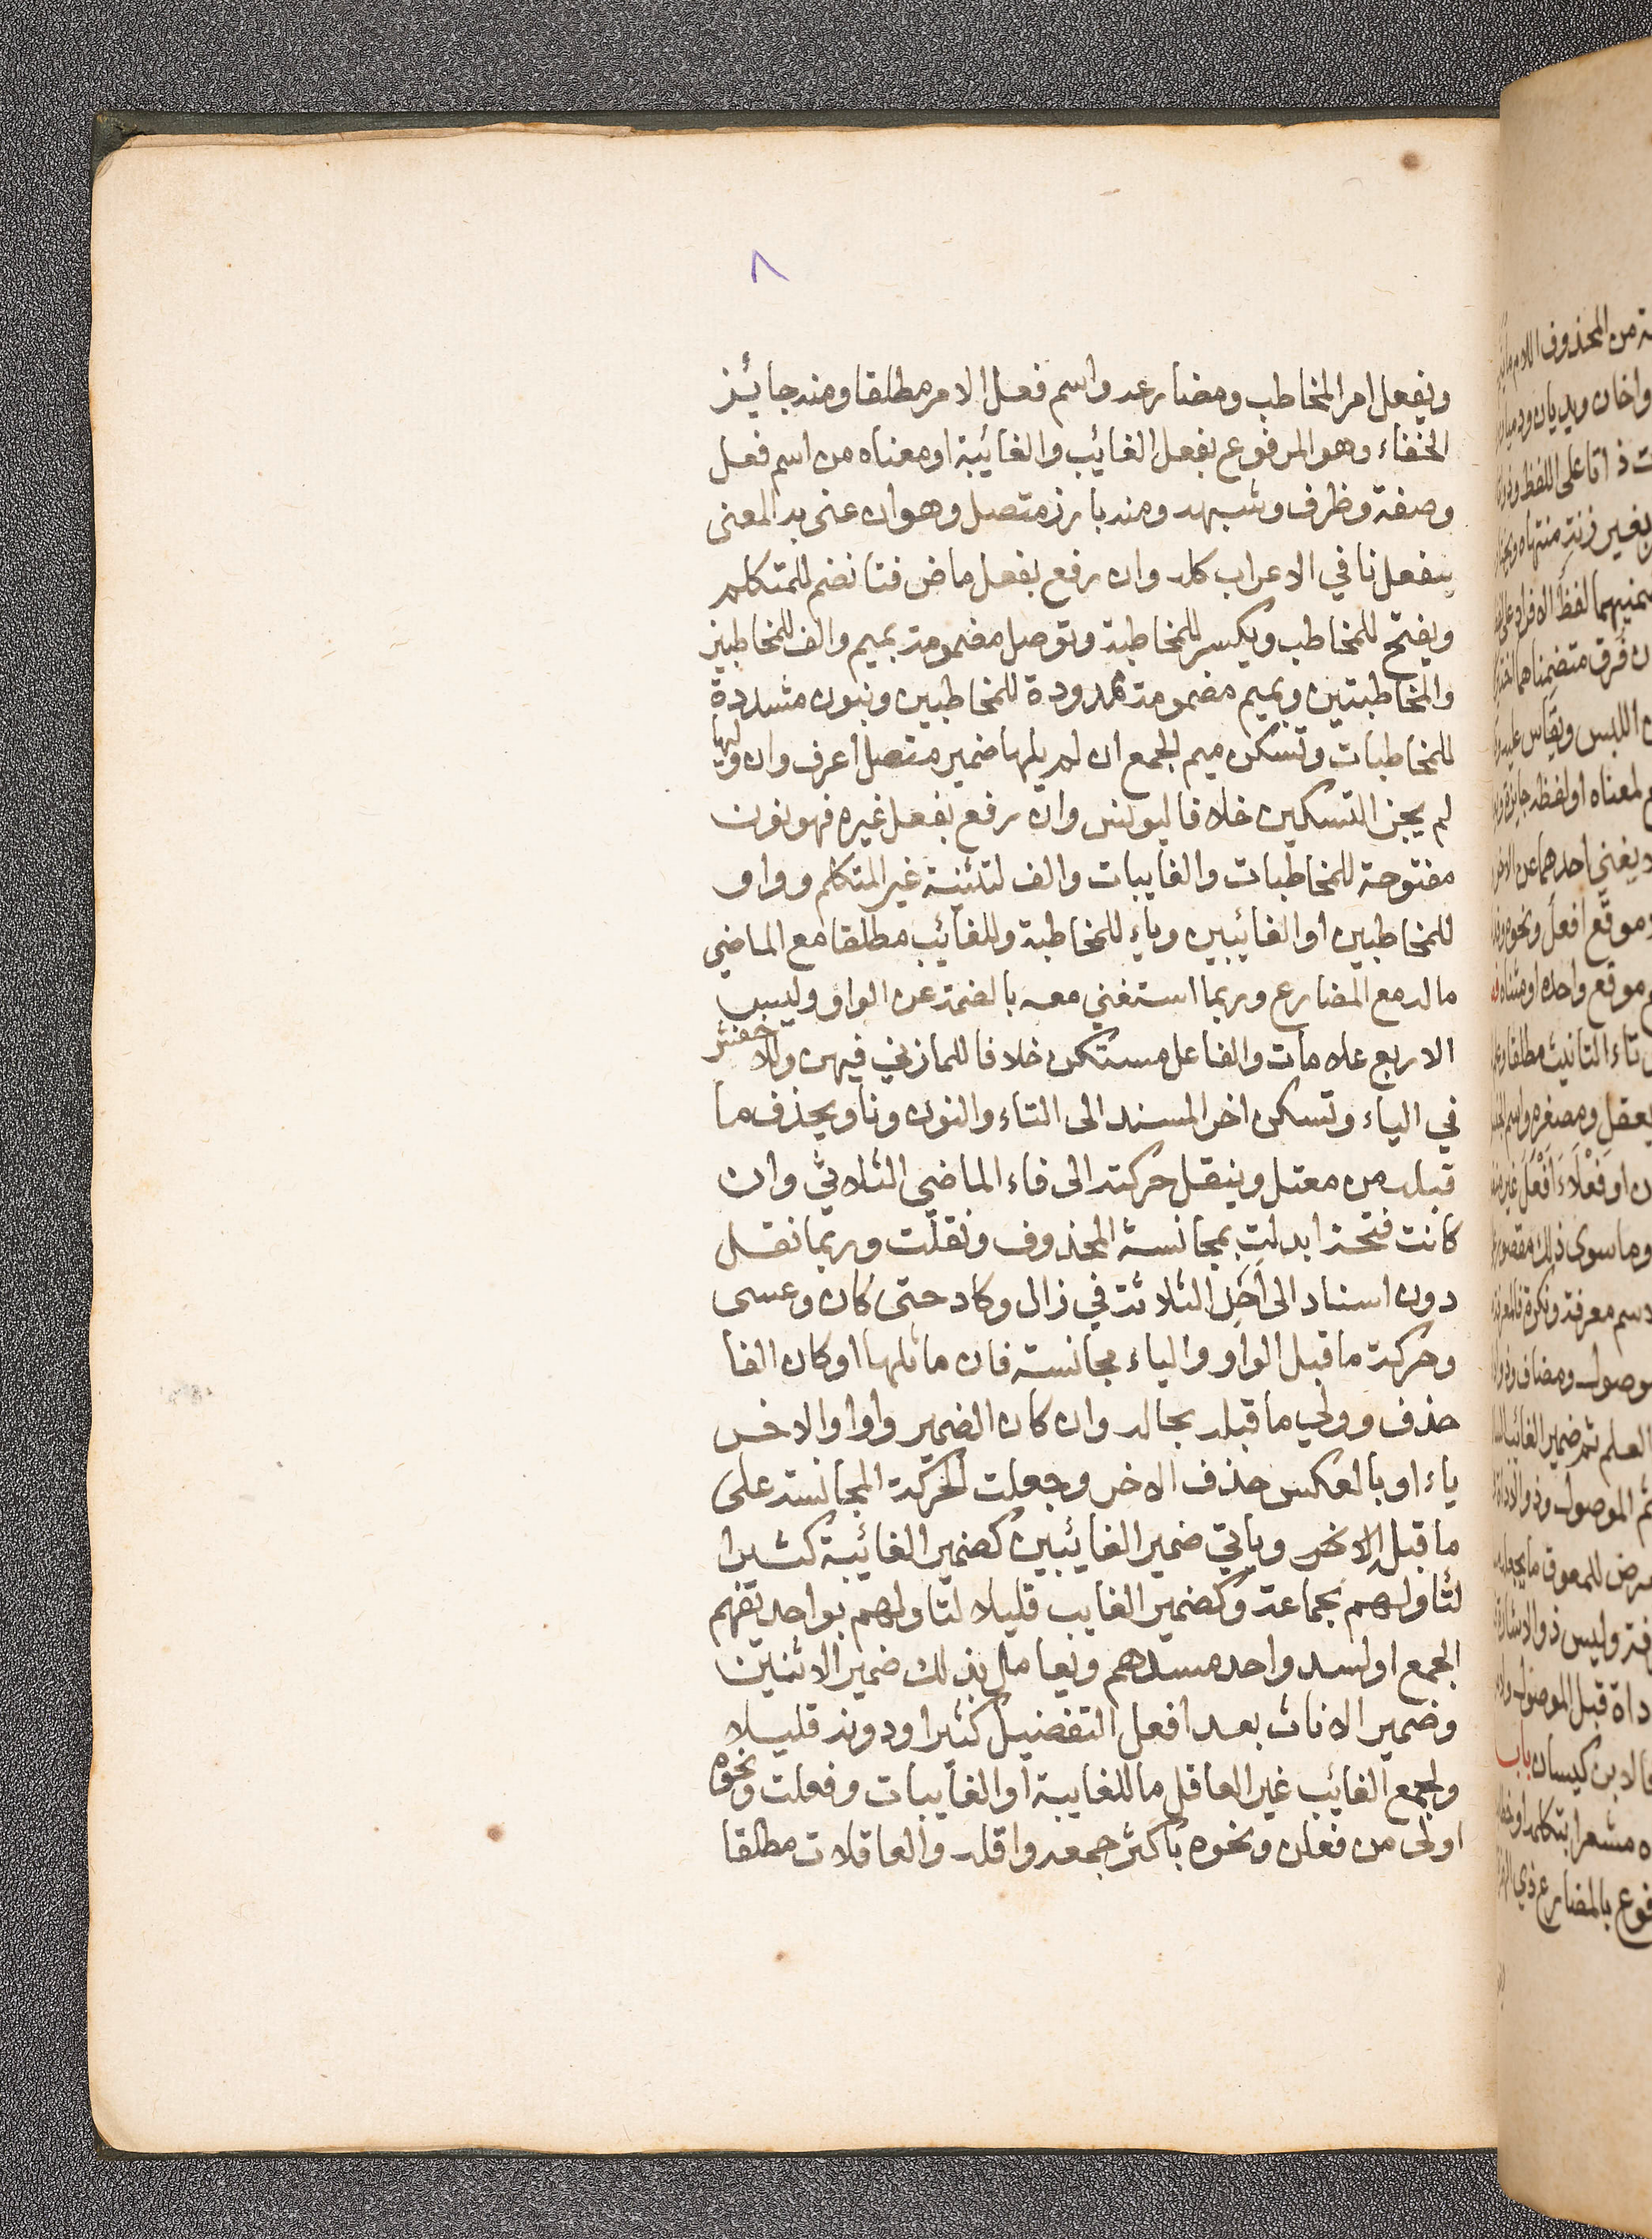 ٨
وبفعل امر المخاطب ومضارعه واسم فعل الامر مطلقا ومنه جائز
الخفاء وهو المرفوع بفعل الغائب والغائبة او معناه من اسم فعل
وصفة وظرف وشبهه ومنه بارز متصل وهو ان عنى به المعنى
بنفعل نا في الاعراب كله وان رفع بفعل ماض فتا تضم للمتكلم
ويفتح للمخاطب ويكسر للمخاطبة وتوصل مضمومة بميم والف للمخاطبين
والمخاطبتين وبميم مضمومة ممدودة للمخاطبين وبنون مشددة
للمخاطبات وتسكن ميم الجمع ان لم يلها ضمير متصل اعرف وان وليها
لم يجز التسكين خلافا ليونس وان رفع بفعل غيره فهو نون
مفتوحة للمخاطبات والغايبات والف لتثنية غير المتكلم وواو
للمخاطبين او الغائبين وياء للمخاطبة وللغائب مطلقا مع الماضي
ماله مع المضارع وربما استغني معه بالضمة عن الواو وليس
الاربع علامات والفاعل مستكن خلافا للمازني فيهن وللاخفش
في الياء وتسكن اخر المسند الى التاء والنون ونا ويحذف ما
قبله من معتل وينقل حركته الى فاء الماضي الثلاثي وان
كانت فتحة ابدلت بمجانسة المحذوف ونقلت وربما نقل
دون اسناد الى احد الثلاثة في زال وكاد حتى كان وعسى
وحركة ما قبل الواو والياء مجانسة فان ماثلها او كان الفا
حذف وولي ما قبله بحاله وان كان الضمير واوا والاخر
ياء او بالعكس حذف الاخر وجعلت الحركة المجانسة على
ما قبل الاخر وياتي ضمير الغائبين كضمير الغائبة كثيرا
لتاولهم بجماعة وكضمير الغايب قليلا لتاولهم بواحد يفهم
الجمع او لسد واحد مسدهم ويعامل بذلك ضمير الاثنين
وضمير الاناث بعد افعل التفضيل كثيرا ودونه قليلا
ولجمع الغائب غير العاقل ما للغايبة او الغايبات وفعلت ونحوه
اولى من فعلن ونحوه باكثر جمعه واقله والعاقلات مطلقا